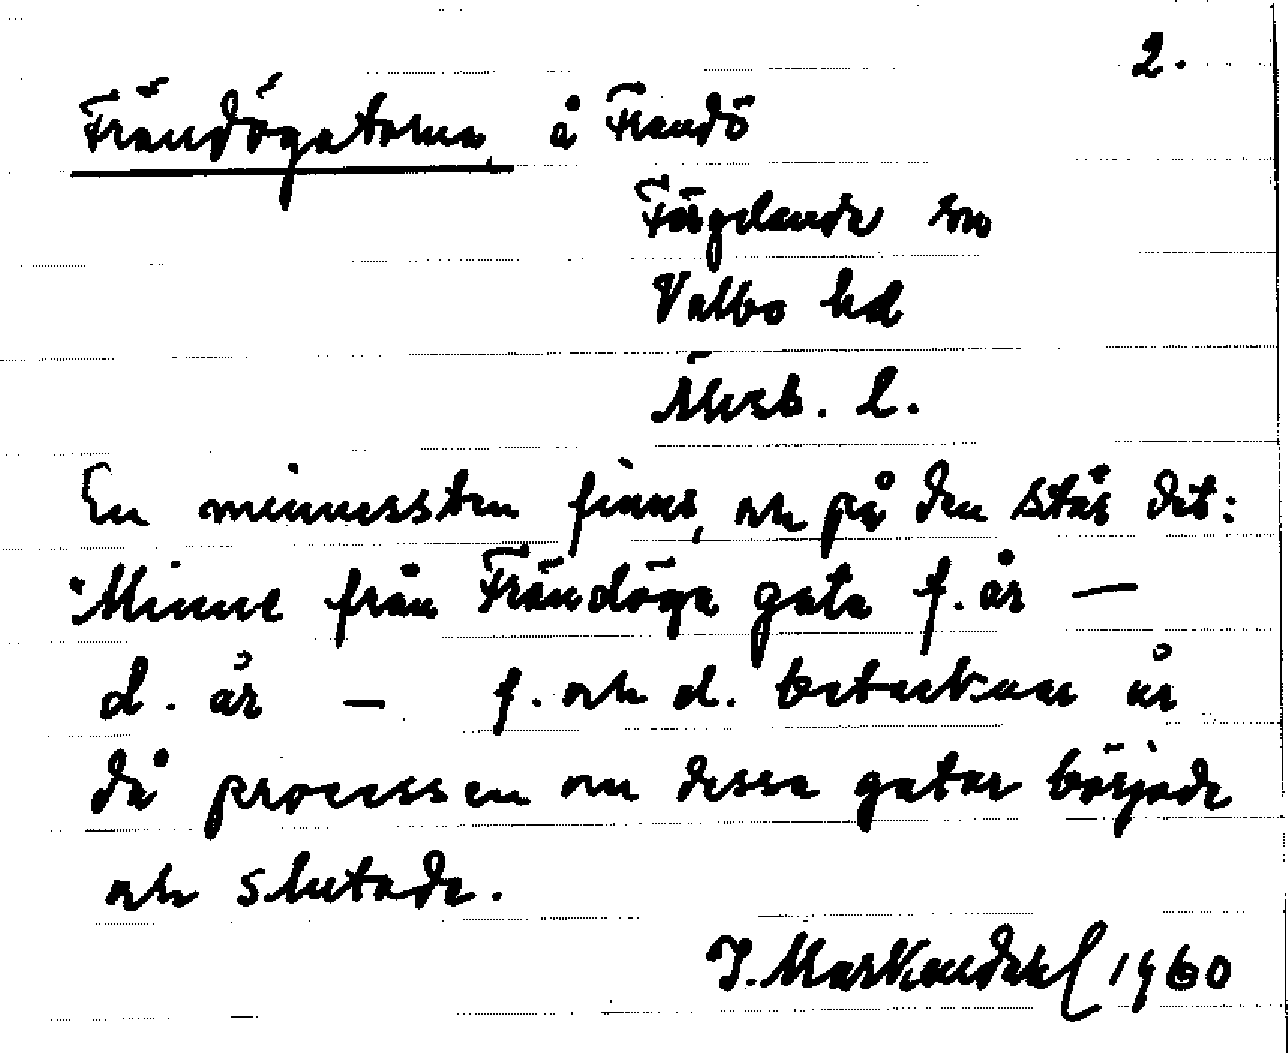 2.
Frändögatorna, å Frendö
Färgelanda sn
Valbo hd
Älvsb. l.
En minnessten finns, och på den står det:
"Minne från Frändöga gata f. år —
d. år — f. och d. betecknar år
då processen om dessa gator började
och slutade.
1960